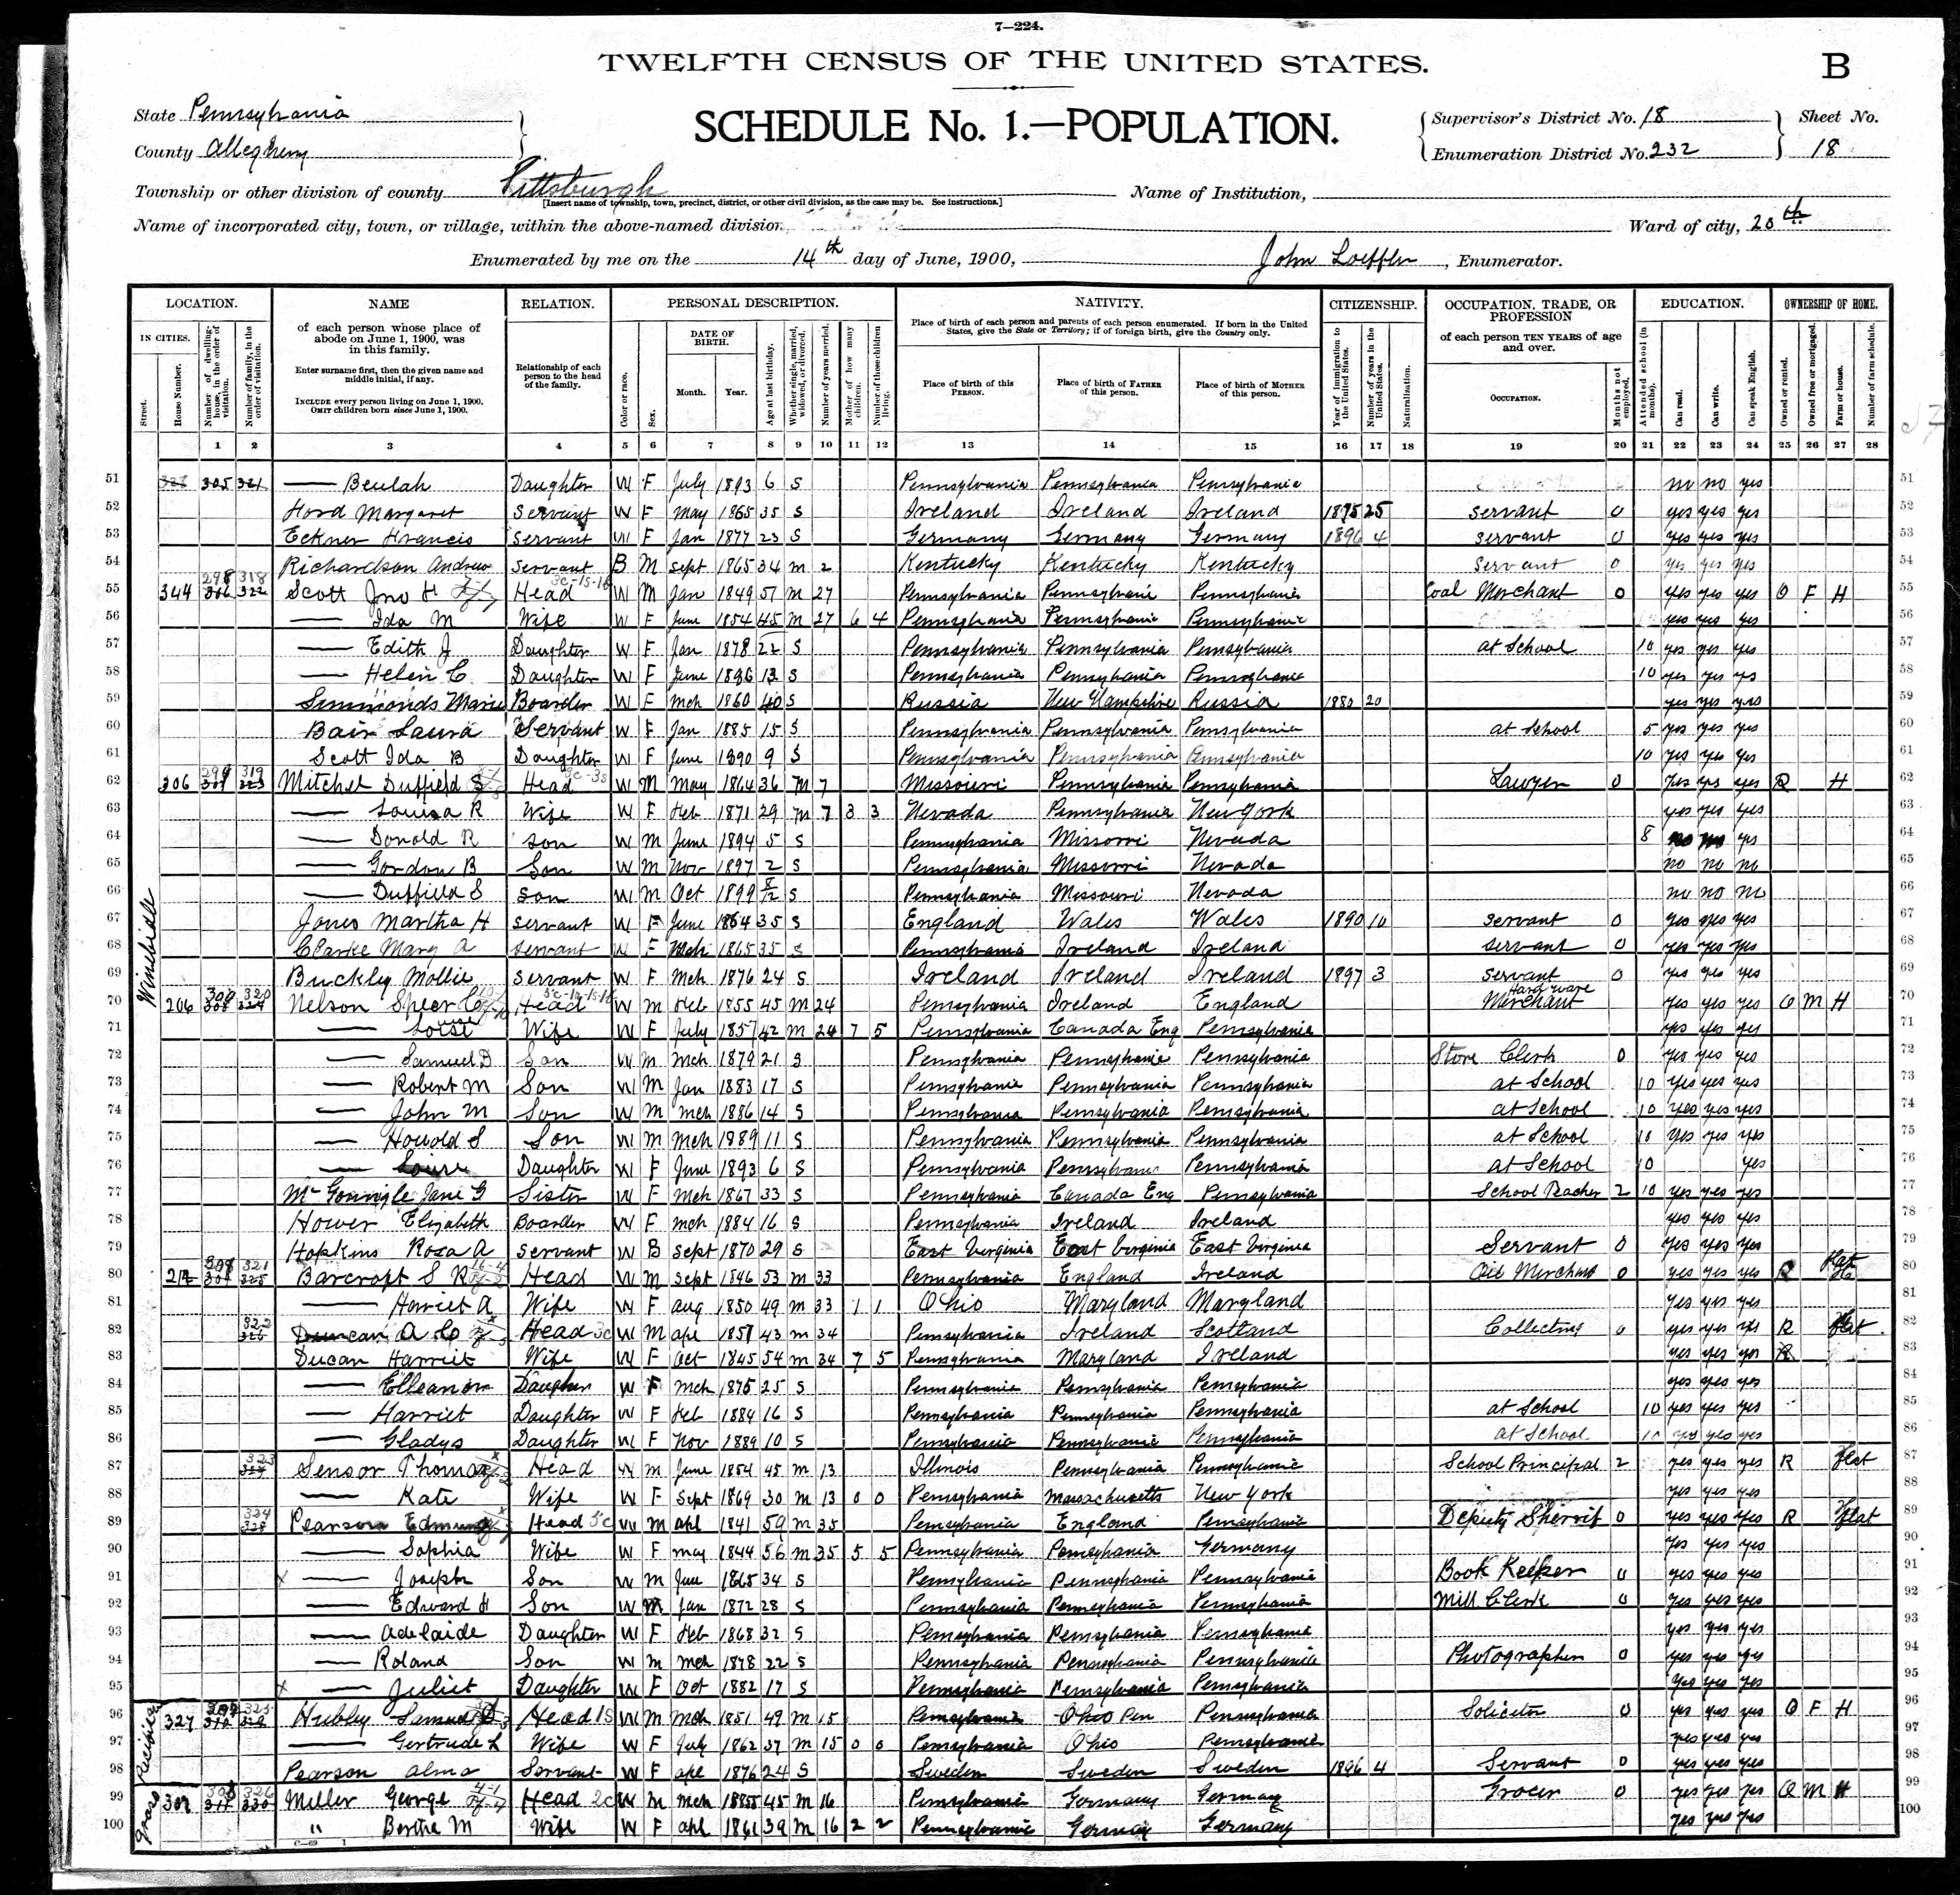 7—224.
TWELFTH CENSUS OF THE UNITED STATES.
B
State Pennsylvania
County Allegheny
SCHEDULE No. 1.—POPULATION.
Supervisor's District No. 18
Enumeration District No. 232
Sheet No.
18
Township or other division of county Pittsburgh
[Insert name of township, town, precinct, district, or other civil division, as the case may be. See instructions.]
Name of Institution,
Name of incorporated city, town, or village, within the above-named division,
Ward of city, 20th
Enumerated by me on the 14th day of June, 1900, John Loeffler, Enumerator.
LOCATION. NAME RELATION. PERSONAL DESCRIPTION. NATIVITY. CITIZENSHIP. OCCUPATION, TRADE, OR PROFESSION EDUCATION. OWNERSHIP OF HOME.
IN CITIES.
Street.
House Number.
Number of dwelling-house, in the order of visitation.
Number of family, in the order of visitation.
of each person whose place of abode on June 1, 1900, was in this family.
Enter surname first, then the given name and middle initial, if any.
INCLUDE every person living on June 1, 1900.
OMIT children born since June 1, 1900.
Relationship of each person to the head of the family.
Color or race.
Sex.
DATE OF BIRTH.
Month. Year.
Age at last birthday.
Whether single, married, widowed, or divorced.
Number of years married.
Mother of how many children.
Number of these children living.
Place of birth of each person and parents of each person enumerated. If born in the United States, give the State or Territory; if of foreign birth, give the Country only.
Place of birth of this PERSON.
Place of birth of FATHER of this person.
Place of birth of MOTHER of this person.
Year of immigration to the United States.
Number of years in the United States.
Naturalization.
of each person TEN YEARS of age and over.
OCCUPATION.
Months not employed.
Attended school (in months).
Can read.
Can write.
Can speak English.
Owned or rented.
Owned free or mortgaged.
Farm or house.
Number of farm schedule.
1 2 3 4 5 6 7 8 9 10 11 12 13 14 15 16 17 18 19 20 21 22 23 24 25 26 27 28
51 305 321 — Beulah Daughter W F July 1893 6 S Pennsylvania Pennsylvania Pennsylvania no no yes 51
52 Hord Margaret Servant W F May 1865 35 S Ireland Ireland Ireland 1875 25 servant 0 yes yes yes 52
53 Eckner Francis Servant W F Jan 1877 23 S Germany Germany Germany 1896 4 servant 0 yes yes yes 53
54 Richardson Andrew Servant B M Sept 1865 34 m 2 Kentucky Kentucky Kentucky servant 0 yes yes yes 54
55 344 298 306 318 322 Scott Jno H Head W M Jan 1849 51 m 27 Pennsylvania Pennsylvani Pennsylvania Coal Merchant 0 yes yes yes O F H 55
56 — Ida M Wife W F June 1854 45 m 27 6 4 Pennsylvania Pennsylvania Pennsylvania yes yes yes 56
57 — Edith J Daughter W F Jan 1878 22 S Pennsylvania Pennsylvania Pennsylvania at School 10 yes yes yes 57
58 — Helen C. Daughter W F June 1886 13 S Pennsylvania Pennsylvania Pennsylvania 10 yes yes yes 58
59 Simmonds Marie Boarder W F Mch 1860 40 S Russia New Hampshire Russia 1880 20 yes yes yes 59
60 Bair Laura Servant W F Jan 1885 15 S Pennsylvania Pennsylvania Pennsylvania at School 5 yes yes yes 60
61 Scott Ida B Daughter W F June 1890 9 S Pennsylvania Pennsylvania Pennsylvania 10 yes yes yes 61
62 206 299 307 319 323 Mitchel Duffield S Head W M May 1864 36 m 7 Missouri Pennsylvania Pennsylvania Lawyer 0 yes yes yes R H 62
63 — Louisa R Wife W F Feb 1871 29 m 7 3 3 Nevada Pennsylvania New York yes yes yes 63
64 — Donald R Son W m June 1894 5 S Pennsylvania Missouri Nevada 8 no no yes 64
65 — Gordon B Son W m Nov 1897 2 S Pennsylvania Missouri Nevada no no no 65
66 — Duffield S Son W m Oct 1899 8/12 S Pennsylvania Missouri Nevada no no no 66
Winebidle
67 Jones Martha H Servant W F June 1864 35 S England Wales Wales 1890 10 servant 0 yes yes yes 67
68 Clarke Mary A Servant W F Mch 1865 35 S Pennsylvania Ireland Ireland servant 0 yes yes yes 68
69 Buckley Mollie Servant W F Mch 1876 24 S Ireland Ireland Ireland 1897 3 servant 0 yes yes yes 69
70 206 300 308 320 324 Nelson Speer C Head W m Feb 1855 45 m 24 Pennsylvania Ireland England Hardware Merchant yes yes yes O M H 70
71 — Wife W F July 1857 42 m 24 7 5 Pennsylvania Canada Eng Pennsylvania yes yes yes 71
72 — Samuel D Son W m Mch 1879 21 S Pennsylvania Pennsylvania Pennsylvania Store Clerk 0 yes yes yes 72
73 — Robert M Son W M Jan 1883 17 S Pennsylvania Pennsylvania Pennsylvania at School 10 yes yes yes 73
74 — John M Son W m Mch 1886 14 S Pennsylvania Pennsylvania Pennsylvania at School 10 yes yes yes 74
75 — Howold S Son W m Mch 1889 11 S Pennsylvania Pennsylvania Pennsylvania at School 10 yes yes yes 75
76 — Daughter W F June 1893 6 S Pennsylvania Pennsylvania Pennsylvania at School 10 yes 76
77 McGonigle Jane G Sister W F Mch 1867 33 S Pennsylvania Canada Eng Pennsylvania School Teacher 2 10 yes yes yes 77
78 Hower Elizabeth Boarder W F mch 1884 16 S Pennsylvania Ireland Ireland yes yes yes 78
79 Hopkins Rosa A Servant W B Sept 1870 29 S East Virginia East Virginia East Virginia Servant 0 yes yes yes 79
80 212 321 325 Barcroft S R Head W M Sept 1846 53 m 33 Pennsylvania England Ireland Oil Merchant 0 yes yes yes R Flat 80
81 — Harriet A Wife W F Aug 1850 49 m 33 1 1 Ohio Maryland Maryland yes yes yes 81
82 322 326 Duncan A Head W M Apl 1857 43 m 34 Pennsylvania Ireland Scotland Collecting 0 yes yes yes R flat 82
83 Ducan Harriet Wife W F Oct 1845 54 m 34 7 5 Pennsylvania Maryland Ireland yes yes yes R 83
84 — Elleanor Daughter W F Mch 1875 25 S Pennsylvania Pennsylvania Pennsylvania yes yes yes 84
85 — Harriet Daughter W F Feb 1884 16 S Pennsylvania Pennsylvania Pennsylvania at School 10 yes yes yes 85
86 — Gladys Daughter W F Nov 1889 10 S Pennsylvania Pennsylvania Pennsylvania at School 10 yes yes yes 86
87 323 327 Sensor Thomas Head W m June 1854 45 m 13 Illinois Pennsylvania Pennsylvania School Principal 2 yes yes yes R flat 87
88 — Kate Wife W F Sept 1869 30 m 13 0 0 Pennsylvania Massachusetts New York yes yes yes 88
89 324 328 Pearson Edmund Head W m Apl 1841 59 m 35 Pennsylvania England Pennsylvania Deputy Sherrif 0 yes yes yes R flat 89
90 — Sophia Wife W F May 1844 56 m 35 5 5 Pennsylvania Pennsylvania Germany yes yes yes 90
91 x — Joseph Son W m June 1865 34 S Pennsylvania Pennsylvania Pennsylvania Book Keeper 0 yes yes yes 91
92 — Edward H Son W M Jan 1872 28 S Pennsylvania Pennsylvania Pennsylvania Mill Clerk 0 yes yes yes 92
93 — Adelaide Daughter W F Feb 1868 32 S Pennsylvania Pennsylvania Pennsylvania yes yes yes 93
94 — Roland Son W m Mch 1878 22 S Pennsylvania Pennsylvania Pennsylvania Photographer 0 yes yes yes 94
95 x — Juliet Daughter W F Oct 1882 17 S Pennsylvania Pennsylvania Pennsylvania yes yes yes 95
96 327 325 Hubley Samuel Head W m Mch 1851 49 m 15 Pennsylvania Ohio Pen Pennsylvania Solicitor 0 yes yes yes O F H 96
97 — Gertrude L Wife W F July 1862 37 m 15 0 0 Pennsylvania Ohio Pennsylvania yes yes yes 97
98 Pearson Alma Servant W F Apl 1876 24 S Sweden Sweden Sweden 1896 4 Servant 0 yes yes yes 98
99 302 326 330 Miller George Head W m Mch 1855 45 m 16 Pennsylvania Germany Germany Grocer 0 yes yes yes O M H 99
100 " Bertha M Wife W F Apl 1861 39 m 16 2 2 Pennsylvania Germany Germany yes yes yes 100
C—69 1